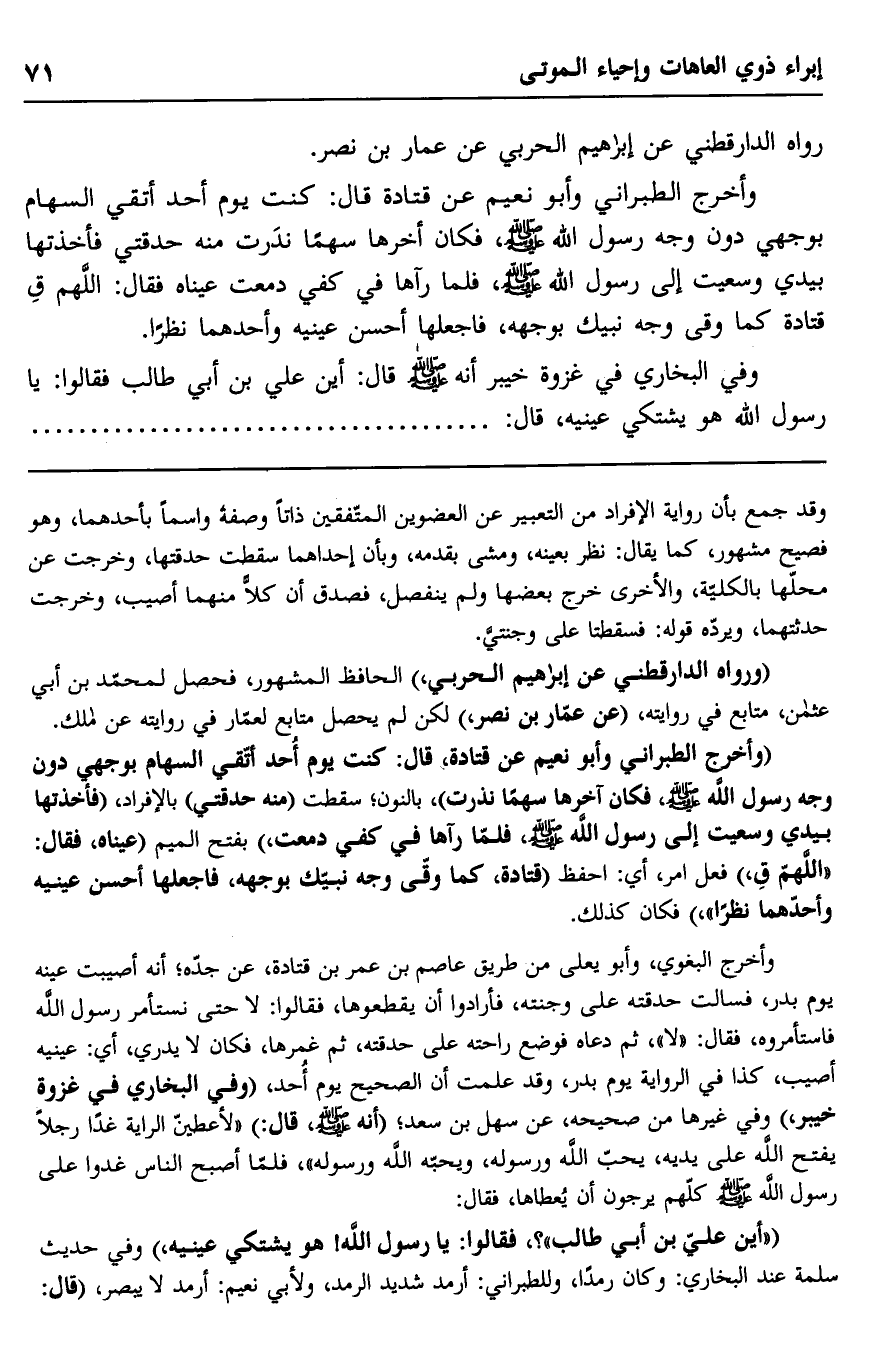 إبراء ذوي العاهات وإحياء الموتى ٧١
رواه الدارقطني عن إبرٰهيم الحربي عن عمار بن نصر.
وأخرج الطبراني وأبو نعيم عن قتادة قال: كنت يوم أحد أتقي السهام
بوجهي دون وجه رسول الله ﷺ، فكان أخرها سهمًا ندَرت منه حدقتي فأخذتها
بيدي وسعيت إلى رسول الله ﷺ، فلما رآها في كفي دمعت عيناه فقال: اللَّهم قِ
قتادة كما وقى وجه نبيك بوجهه، فاجعلها أحسن عينيه وأحدهما نظرًا.
وفي البخاري في غزوة خيبر أنه ﷺ قال: أين علي بن أبي طالب فقالوا: يا
رسول الله هو يشتكي عينيه، قال: .......................................
وقد جمع بأن رواية الإفراد من التعبير عن العضوين المتّفقين ذاتاً وصفة واسماً بأحدهما، وهو
فصيح مشهور، كما يقال: نظر بعينه، ومشى بقدمه، وبأن إحداهما سقطت حدقتها، وخرجت عن
محلّها بالكليّة، والأخرى خرج بعضها ولم ينفصل، فصدق أن كلاًّ منهما أصيب، وخرجت
حدثتهما، ويردّه قوله: فسقطتا على وجنتيَّ.
(ورواه الدارقطني عن إبرٰهيم الحربي،) الحافظ المشهور، فحصل لمحمّد بن أبي
عثمٰن، متابع في روايته، (عن عمّار بن نصر،) لكن لم يحصل متابع لعمّار في روايته عن مٰلك.
(وأخرج الطبراني وأبو نعيم عن قتادة، قال: كنت يوم أُحد أتّقي السهام بوجهي دون
وجه رسول اللَّه ﷺ، فكان آخرها سهمًا نذرت)، بالنون؛ سقطت (منه حدقتي) بالإفراد، (فأخذتها
بيدي وسعيت إلى رسول اللَّه ﷺ، فلمّا رآها في كفي دمعت،) بفتح الميم (عيناه، فقال:
«اللَّهمّ قِ،) فعل امر، أي: احفظ (قتادة، كما وقّى وجه نبيّك بوجهه، فاجعلها أحسن عينيه
وأحدّهما نظرًا»،) فكان كذلك.
وأخرج البغوي، وأبو يعلى من طريق عاصم بن عمر بن قتادة، عن جدّه؛ أنه أصيبت عينه
يوم بدر، فسالت حدقته على وجنته، فأرادوا أن يقطعوها، فقالوا: لا حتى نستأمر رسول اللَّه
فاستأمروه، فقال: «لا»، ثم دعاه فوضع راحته على حدقته، ثم غمرها، فكان لا يدري، أي: عينيه
أصيب، كذا في الرواية يوم بدر، وقد علمت أن الصحيح يوم أُحد، (وفي البخاري في غزوة
خيبر،) وفي غيرها من صحيحه، عن سهل بن سعد؛ (أنه ﷺ، قال:) «لأعطينّ الراية غدًا رجلاً
يفتح اللَّه على يديه، يحبّ اللَّه ورسوله، ويحبّه اللَّه ورسوله»، فلمّا أصبح الناس غدوا على
رسول اللَّه ﷺ كلّهم يرجون أن يُعطاها، فقال:
(«أين عليّ بن أبي طالب»؟، فقالوا: يا رسول اللَّه! هو يشتكي عينيه،) وفي حديث
سلمة عند البخاري: وكان رمدًا، وللطبراني: أرمد شديد الرمد، ولأبي نعيم: أرمد لا يبصر، (قال: